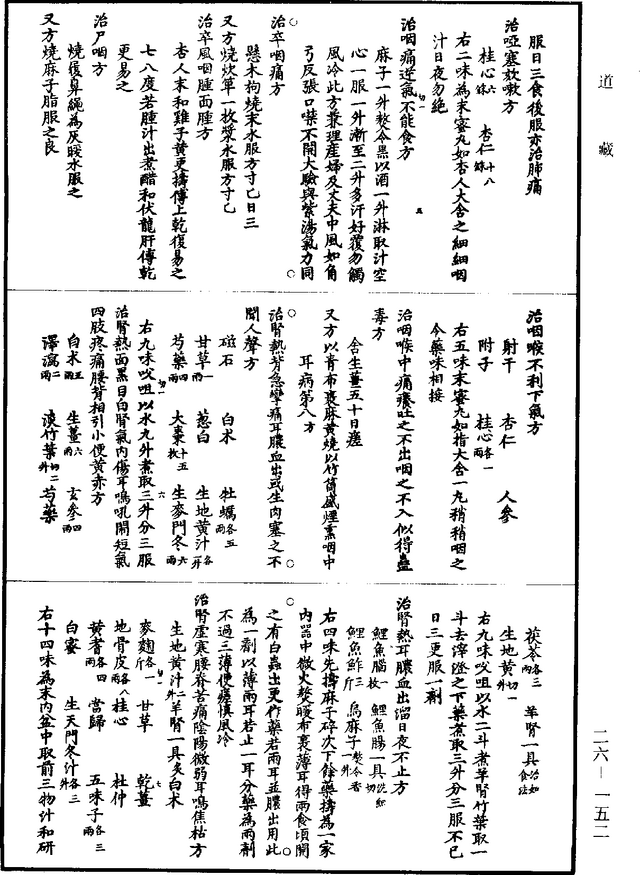 道藏
服日三食後服亦治肺痛
治啞塞放嗽方
桂心六銖 杏仁十八銖
右二味為末蜜丸如杏人大含之細細咽
汁日夜勿絕
治咽痛逆氣不能食方
麻子一升熬令黑以酒一升淋取汁空
心一服一升漸至二升多汗好覆勿觸
風冷此方兼理產婦及丈夫中風如角
弓反張口噤不開大驗與紫湯氣力同
治卒咽痛方
懸木枸燒末水服方寸匕日三
又方燒炊箄一枚漿水服方寸匕
治卒風咽腫面腫方
杏人末和雞子黃更擣傅上乾復易之
七八度若腫汁出煮醋和伏龍肝傅乾
更易之
治尸咽方
燒履鼻繩為灰暖水服之
又方燒麻子脂服之良
治咽喉不利下氣方
射干 杏仁 人參
附子 桂心各一兩
右五味末蜜丸如指大含一丸稍稍咽之
令藥味相接
治咽喉中痛癢吐之不出咽之不入似得蟲
毒方
含生薑五十日瘥
又方以青布裹麻黃燒以竹筒盛煙熏咽中
耳病第八方
治腎熱背急攣痛耳膿血出或生肉塞之不
聞人聲方
磁石 白朮 牡蠣各五兩
甘草一兩 蔥白 生地黃汁各一升
芍藥四兩 大棗十五枚 生麥門冬六兩
右九味㕮咀以水九升煮取三升分三服
治腎熱面黑目白腎氣內傷耳鳴吼鬧短氣
四肢疼痛腰背相引小便黃赤方
白朮五兩 生薑六兩 玄參四兩
澤瀉二兩 淡竹葉切二升 芍藥
茯苓各三兩 羊腎一具治如食法
生地黃切一升
右九味㕮咀以水二斗煮羊腎竹葉取一
斗去滓澄之下藥煮取三升分三服不已
日三更服一劑
治腎熱耳膿血出溜日夜不止方
鯉魚腦一枚 鯉魚腸一具洗細切
鯉魚鮓三斤 烏麻子熬令香一升
右四味先擣麻子碎次下餘藥擣為一家
內器中微火熬暖布裹薄耳得兩食頃開
之有白蟲出更作藥若兩耳並膿出用此
為一劑以薄兩耳若止一耳分藥為兩劑
不過三薄便瘥慎風冷
治腎虛寒腰脊苦痛陰陽微弱耳鳴焦枯方
生地黃汁二升 羊腎一具炙 白朮
麥麴各一斤 甘草 乾薑
地骨皮各八兩 桂心 杜仲
黃耆各四兩 當歸 五味子各三兩
白蜜 生天門冬汁各三升
右十四味為末內盆中取前三物汁和研
二六—一五二